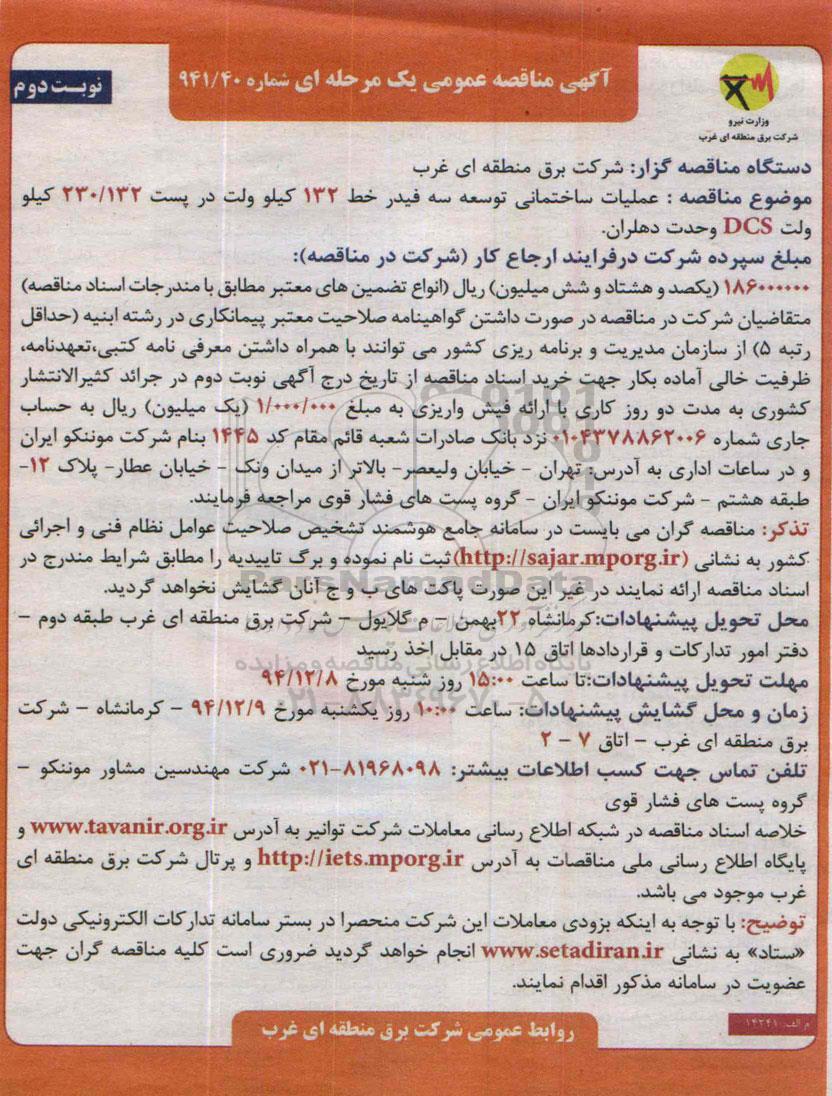 آگهی مناقصه عمومی یک مرحله ای شماره ۹۴۱/۴۰
نوبت دوم
وزارت نیرو
شرکت برق منطقه ای غرب
دستگاه مناقصه گزار: شرکت برق منطقه ای غرب
موضوع مناقصه : عملیات ساختمانی توسعه سه فیدر خط ۱۳۲ کیلو ولت در پست ۲۳۰/۱۳۲ کیلو
ولت DCS وحدت دهلران.
مبلغ سپرده شرکت درفرایند ارجاع کار (شرکت در مناقصه):
۱۸۶۰۰۰۰۰۰ (یکصد و هشتاد و شش میلیون) ریال (انواع تضمین های معتبر مطابق با مندرجات اسناد مناقصه)
متقاضیان شرکت در مناقصه در صورت داشتن گواهینامه صلاحیت معتبر پیمانکاری در رشته ابنیه (حداقل
رتبه ۵) از سازمان مدیریت و برنامه ریزی کشور می توانند با همراه داشتن معرفی نامه کتبی،تعهدنامه،
ظرفیت خالی آماده بکار جهت خرید اسناد مناقصه از تاریخ درج آگهی نوبت دوم در جرائد کثیرالانتشار
کشوری به مدت دو روز کاری با ارائه فیش واریزی به مبلغ ۱/۰۰۰/۰۰۰ (یک میلیون) ریال به حساب
جاری شماره ۰۱۰۴۳۷۸۸۶۲۰۰۶ نزد بانک صادرات شعبه قائم مقام کد ۱۴۴۵ بنام شرکت موننکو ایران
و در ساعات اداری به آدرس: تهران - خیابان ولیعصر- بالاتر از میدان ونک - خیابان عطار- پلاک ۱۲-
طبقه هشتم - شرکت موننکو ایران - گروه پست های فشار قوی مراجعه فرمایند.
تذکر: مناقصه گران می بایست در سامانه جامع هوشمند تشخیص صلاحیت عوامل نظام فنی و اجرائی
کشور به نشانی (http://sajar.mporg.ir) ثبت نام نموده و برگ تاییدیه را مطابق شرایط مندرج در
اسناد مناقصه ارائه نمایند در غیر این صورت پاکت های ب و ج آنان گشایش نخواهد گردید.
محل تحویل پیشنهادات:کرمانشاه ۲۲بهمن - م گلایول - شرکت برق منطقه ای غرب طبقه دوم -
دفتر امور تدارکات و قراردادها اتاق ۱۵ در مقابل اخذ رسید
مهلت تحویل پیشنهادات:تا ساعت ۱۵:۰۰ روز شنبه مورخ ۹۴/۱۲/۸
زمان و محل گشایش پیشنهادات: ساعت ۱۰:۰۰ روز یکشنبه مورخ ۹۴/۱۲/۹ - کرمانشاه - شرکت
برق منطقه ای غرب - اتاق ۷ - ۲
تلفن تماس جهت کسب اطلاعات بیشتر: ۸۱۹۶۸۰۹۸-۰۲۱ شرکت مهندسین مشاور موننکو -
گروه پست های فشار قوی
خلاصه اسناد مناقصه در شبکه اطلاع رسانی معاملات شرکت توانیر به آدرس www.tavanir.org.ir و
پایگاه اطلاع رسانی ملی مناقصات به آدرس http://iets.mporg.ir و پرتال شرکت برق منطقه ای
غرب موجود می باشد.
توضیح: با توجه به اینکه بزودی معاملات این شرکت منحصرا در بستر سامانه تدارکات الکترونیکی دولت
«ستاد» به نشانی www.setadiran.ir انجام خواهد گردید ضروری است کلیه مناقصه گران جهت
عضویت در سامانه مذکور اقدام نمایند.
م الف: ۱۴۲۴۱
روابط عمومی شرکت برق منطقه ای غرب
ParsNamadData
پایگاه اطلاع رسانی مناقصه و مزایده